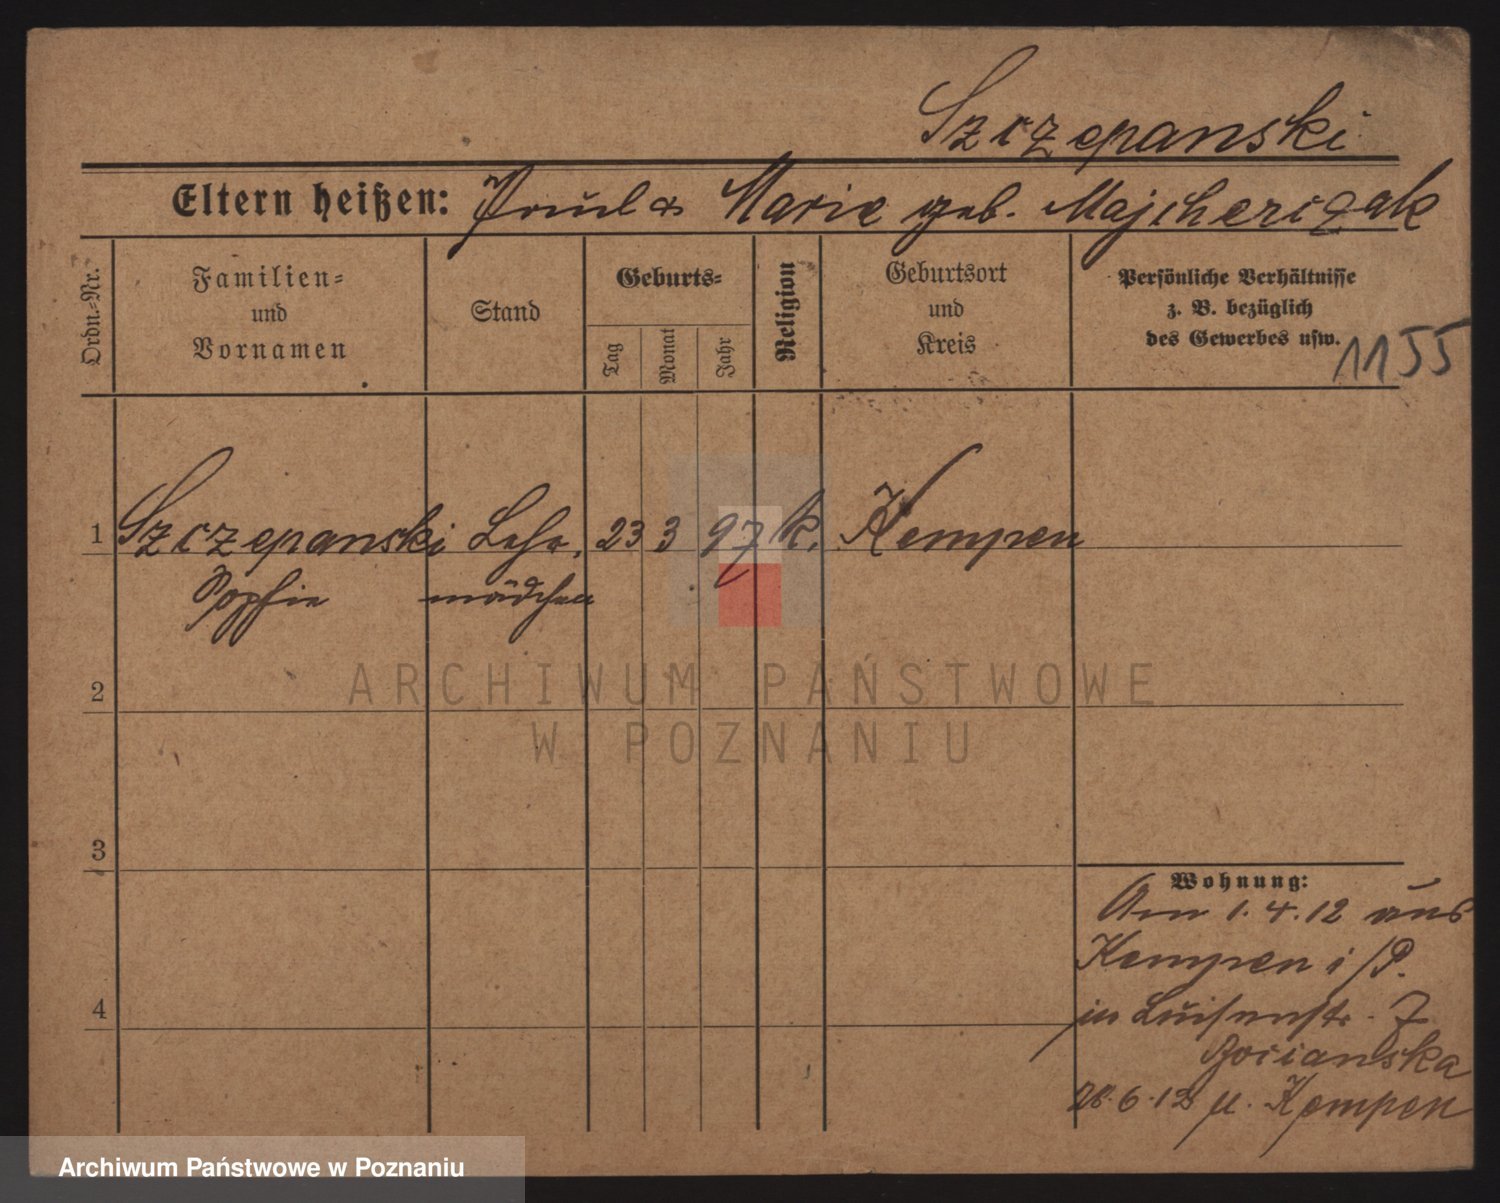 Szczepanski
Eltern heißen: Paul & Marie geb. Majcherczak
Ordn.-Nr.
Familien-
und
Vornamen
Stand
Geburts-
Tag
Monat
Jahr
Religion
Geburtsort
und
Kreis
Persönliche Verhältnisse
z. B. bezüglich
des Gewerbes usw.
1155
1 Szczepanski Lehr. 23 3 97 k. Kempen
Sophie mädchen
2
ARCHIWUM PAŃSTWOWE
W POZNANIU
3
Wohnung:
Am 1.4.12 aus
Kempen i/P.
4
in Luisenstr. 7
28.6.12 n. Kempen
Archiwum Państwowe w Poznaniu